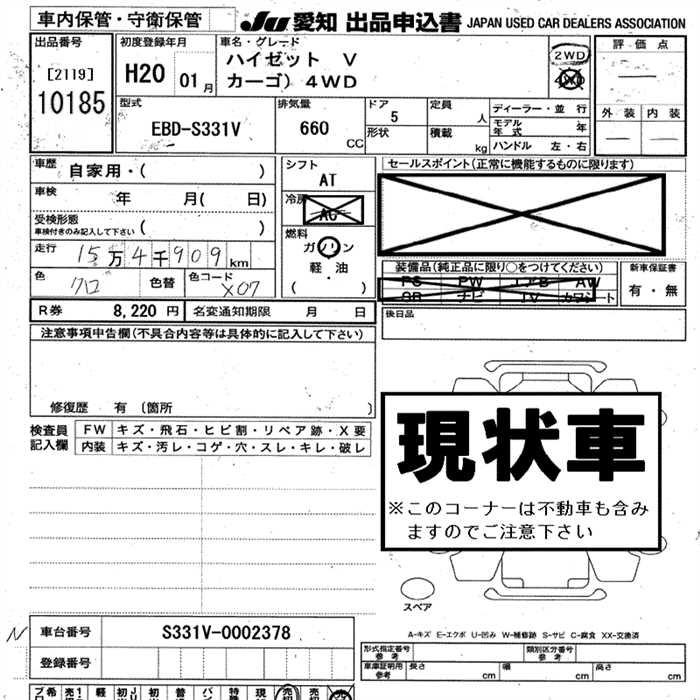 車内保管・守衛保管
JU 愛知 出品申込書 JAPAN USED CAR DEALERS ASSOCIATION
出品番号
[2119]
10185
初度登録年月
H20 01月
車名・グレード
ハイゼット V
カーゴ) 4WD
2WD
4WD
評価点
外装 内装
型式
EBD-S331V
排気量
660
CC
ドア
5
形状
定員
人
積載
kg
ディーラー・並行
モデル年式 年
ハンドル 左・右
車歴 自家用・( )
車検 年 月( 日)
受検形態
車検付きのみ記入して下さい ( )
走行 15万4千909km
色 クロ 色替 色コード X07
R券 8,220円 名変通知期限 月 日
シフト
AT
冷房
AC
燃料
ガソリン
軽・油
( ・ )
セールスポイント(正常に機能するものに限ります)
装備品(純正品に限り○をつけてください)
PS PW エアB AW
SR ナビ TV カワシート
新車保証書
有・無
後日品
注意事項申告欄(不具合内容等は具体的に記入して下さい)
修復歴 有(箇所 )
検査員記入欄
FW キズ・飛石・ヒビ割・リペア跡・X要
内装 キズ・汚レ・コゲ・穴・スレ・キレ・破レ
現状車
※このコーナーは不動車も含み
ますのでご注意下さい
スペア
A-キズ E-エクボ U-凹み W-補修跡 S-サビ C-腐食 XX-交換済
N
車台番号 S331V-0002378
登録番号
形式指定番号 参考
類別区分番号 参考
車庫証明用 参考 長さ cm 幅 cm 高さ cm